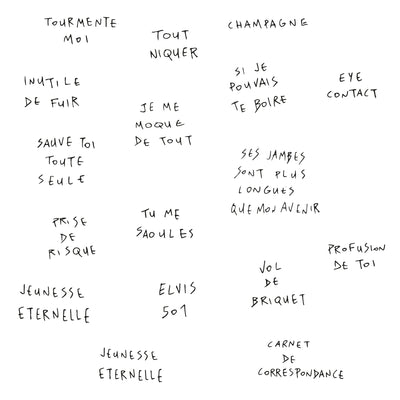 TOURMENTE
MOI
TOUT
NIQUER
CHAMPAGNE
INUTILE
DE FUIR
JE ME
MOQUE
DE TOUT
SI JE
POUVAIS
TE BOIRE
EYE
CONTACT
SAUVE TOI
TOUTE
SEULE
SES JAMBES
SONT PLUS
LONGUES
QUE MON AVENIR
PRISE
DE
RISQUE
TU ME
SAOULES
PROFUSION
DE TOI
VOL
DE
BRIQUET
JEUNESSE
ETERNELLE
ELVIS
501
JEUNESSE
ETERNELLE
CARNET
DE
CORRESPONDANCE